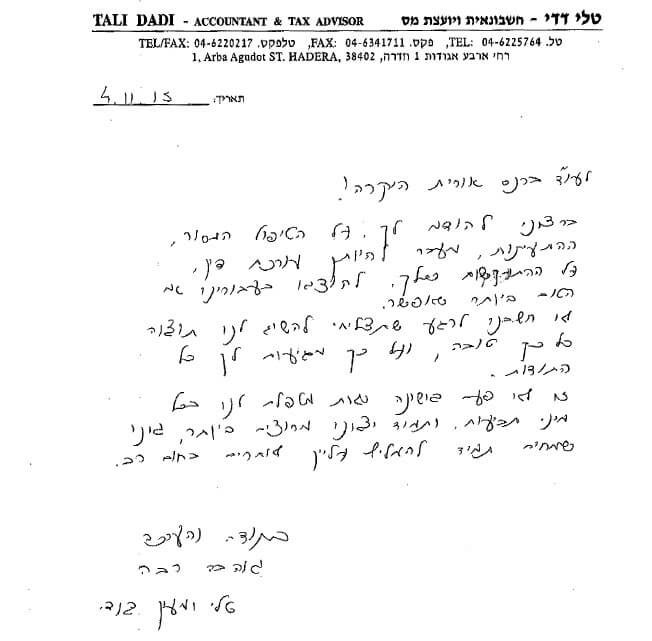 TALI DADI - ACCOUNTANT & TAX ADVISOR טלי דדי - חשבונאית ויועצת מס
TEL/FAX: 04-6220217 .טלפקס ,FAX: 04-6341711 .פקס ,TEL: 04-6225764 .טל
1, Arba Agudot ST. HADERA, 38402 ,רחי ארבע אגודות 1 חדרה
תאריך: 4.11.15
לעו"ד ברנס אורית היקרה!
ברצוני להודות לך, על הטיפול המסור,
ההתעניינות, מעבר להיותך עורכת דין,
על ההתעקשות שלך, להוציא עבורינו את
הטוב ביותר שאפשר.
לא חשבנו לרגע שתצליחי להשיג לנו תוצאה
כל כך טובה, ועל כך מגיעות לך כל
התודות.
זו לא פעם ראשונה שאת מטפלת לנו בכל
מיני תביעות, ותמיד יצאנו מרוצים ביותר,
שמחים תמיד להמליץ עלייך לאחרים בחום רב.
בתודה והערכה
אוהבת רבה
טלי